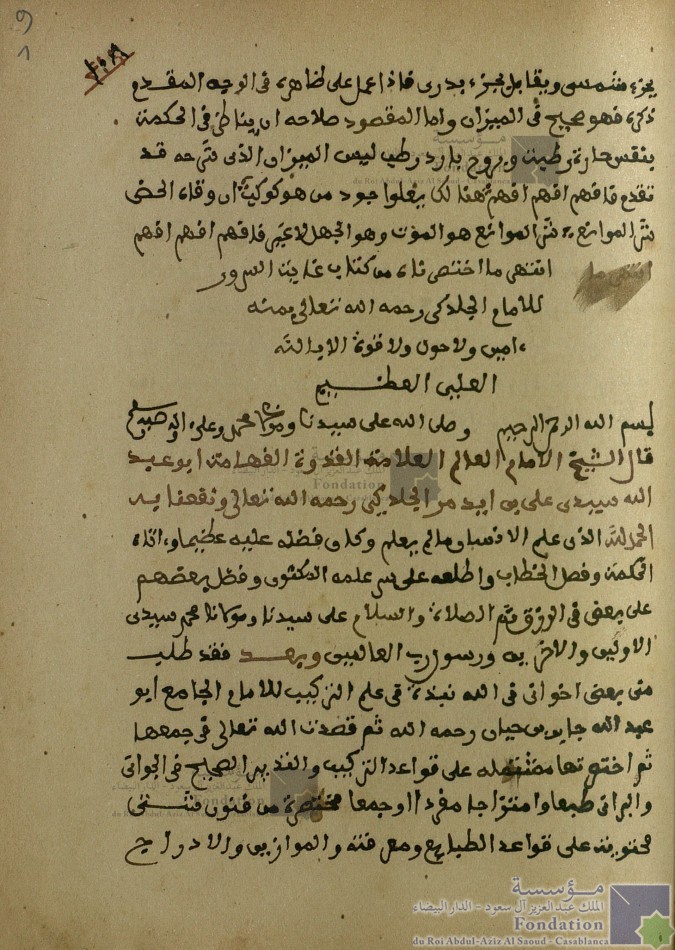 بجزء شمسي ويقابل بجزء بدري فاذا عمل على ظاهره في الوجه المقدم
ذكره فهو صحيح في الميزان واما المقصود صلاحه ان يناظر في الحكمة
بنفس حارة رطبة وبروح بارد رطب ليس الميزان الذي شرحه قد
تقدم فافهم افهم افهم من هو كوكب
شر الموانع شر الموانع هو الموت وهو الجهل لا غير فافهم افهم افهم
انتهى ما انتهى ما اختصرناه من كتاب غاية السرور
للامام الجلدكي رحمه الله تعالى بمنه
ءامين ولا حول ولا قوة الا بالله
العلي العظيم
بسم الله الرحمن الرحيم وصلى الله على سيدنا ومولانا محمد وعلى ءاله وصحبه
قال الشيخ الامام العالم العلامة القدوة الفهامة ابو عبد
الله سيدي علي بن ايدمر الجلدكي رحمه الله تعالى ونفعنا به
الحمد لله الذي علم الانسان ما لم يعلم وكان فضله عليه عظيما وءاتاه
الحكمة وفصل الخطاب واطلعه على سر علمه المكنون وفضل بعضهم
على بعض في الرزق ثم الصلاة والسلام على سيدنا ومولانا محمد سيد
الاولين والاخرين ورسول رب العالمين وبعد فقد طلب
مني بعض اخواني في الله نبذة في علم التركيب للامام الجامع ابو
عبد الله جابر بن حيان رحمه الله ثم قصدت الله تعالى في جمعها
ثم اختصرتها مشتملة على قواعد التركيب والتدبير الصحيح في الجواني
والبراني طبعا وامتزاجا مفردا او جمعا مختصرة من فنون شتى
محتوية على قواعد الطبايع ومعرفته والموازين والازدواج
مؤسسة
الملك عبد العزيز آل سعود - الدار البيضاء
Fondation
du Roi Abdul-Aziz Al Saoud - Casablanca